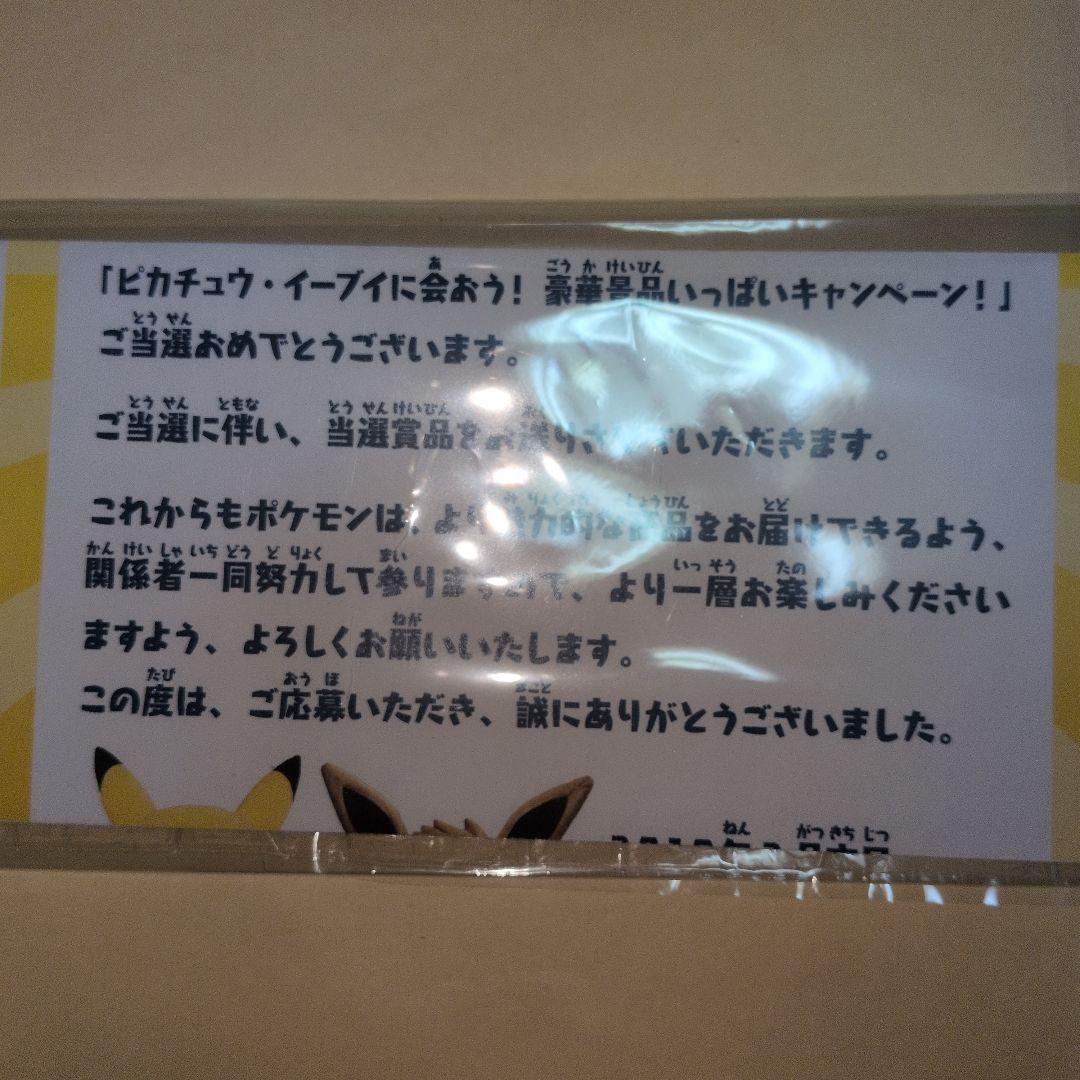 「ピカチュウ・イーブイに会おう！ 豪華景品いっぱいキャンペーン！」
ご当選おめでとうございます。
ご当選に伴い、当選賞品をお送りさせていただきます。
これからもポケモンは、より魅力的な商品をお届けできるよう、
関係者一同努力して参りますので、より一層お楽しみください
ますよう、よろしくお願いいたします。
この度は、ご応募いただき、誠にありがとうございました。
年 月吉日